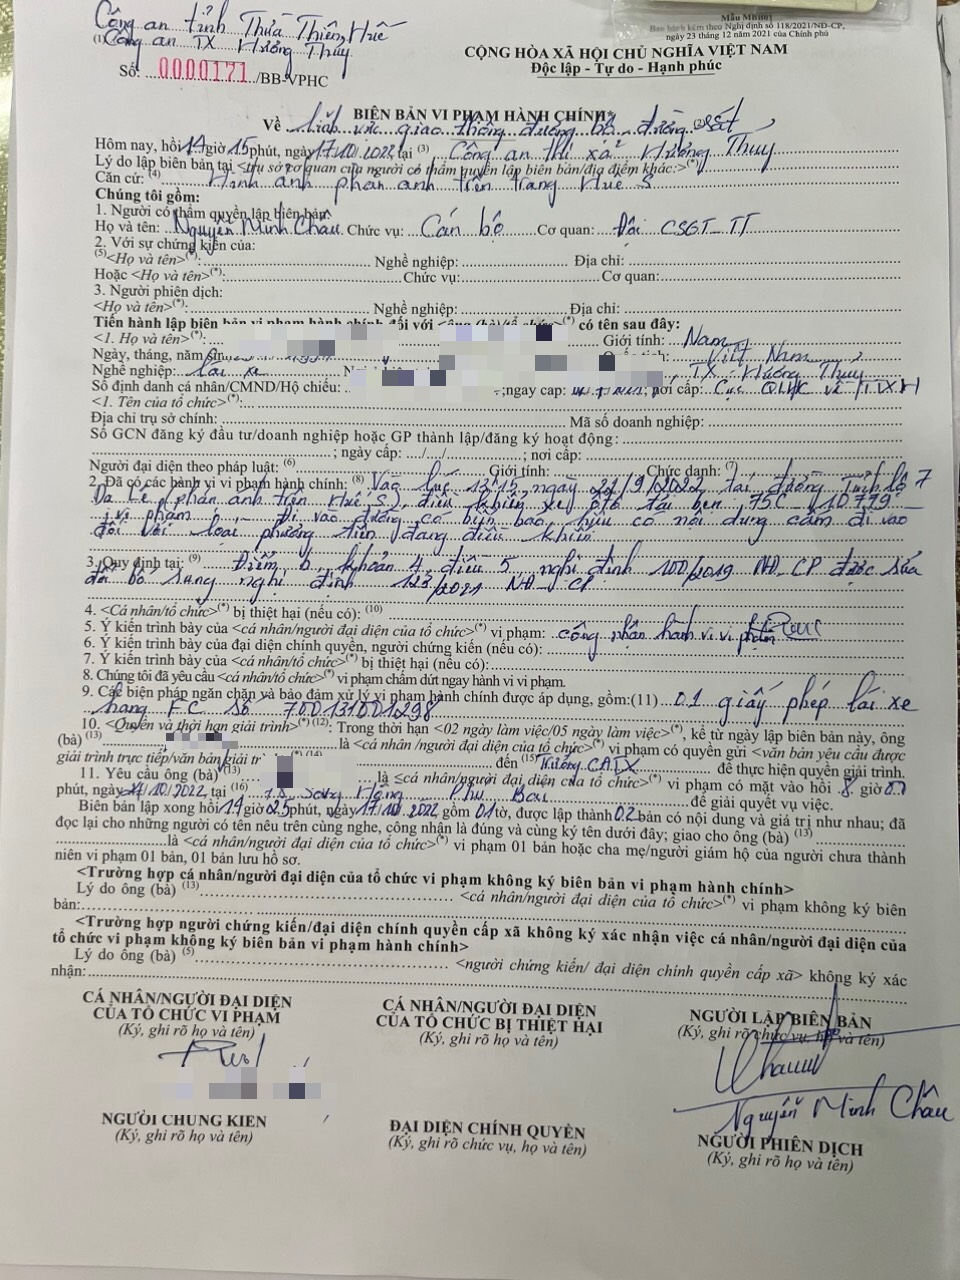 Công an tỉnh Thừa Thiên Huế
(1) Công an TX Hương Thủy
Số: 0000171/BB-VPHC
Mẫu MBB01
Ban hành kèm theo Nghị định số 118/2021/NĐ-CP,
ngày 23 tháng 12 năm 2021 của Chính phủ
CỘNG HÒA XÃ HỘI CHỦ NGHĨA VIỆT NAM
Độc lập - Tự do - Hạnh phúc
BIÊN BẢN VI PHẠM HÀNH CHÍNH*
Về lĩnh vực giao thông đường bộ đường (2) sắt
Hôm nay, hồi 14 giờ 15 phút, ngày 17/10/2022, tại (3) Công an thị xã Hương Thủy
Lý do lập biên bản tại <trụ sở cơ quan của người có thẩm quyền lập biên bản/địa điểm khác:>(*)
Căn cứ: (4) Hình ảnh phản ánh trên trang Huế S
Chúng tôi gồm:
1. Người có thẩm quyền lập biên bản:
Họ và tên: Nguyễn Minh Châu Chức vụ: Cán bộ Cơ quan: Đội CSGT-TT
2. Với sự chứng kiến của:
(5)<Họ và tên>(*): Nghề nghiệp: Địa chỉ:
Hoặc <Họ và tên>(*): Chức vụ: Cơ quan:
3. Người phiên dịch:
<Họ và tên>(*): Nghề nghiệp: Địa chỉ:
Tiến hành lập biên bản vi phạm hành chính đối với <ông (bà)/tổ chức>(*) có tên sau đây:
<1. Họ và tên>(*): Giới tính: Nam
Ngày, tháng, năm Việt Nam
Nghề nghiệp: lái xe TX Hương Thủy
Số định danh cá nhân/CMND/Hộ chiếu: ;ngày cấp: nơi cấp: Cục QLHC về TTXH
<1. Tên của tổ chức>(*):
Địa chỉ trụ sở chính: Mã số doanh nghiệp:
Số GCN đăng ký đầu tư/doanh nghiệp hoặc GP thành lập/đăng ký hoạt động:
; ngày cấp: .../..../......; nơi cấp:
Người đại diện theo pháp luật: (6) Giới tính: Chức danh: (7)
2. Đã có các hành vi vi phạm hành chính: (8) Vào lúc 12h15, ngày 22/9/2022, tại đường Tỉnh lộ 7
Dạ Lê (phản ánh trên Huế S), điều khiển xe ôtô tải bển 75C - 10779
vi phạm: - Đi vào đường có biển báo hiệu có nội dung cấm đi vào
đối với loại phương tiện đang điều khiển
3. Quy định tại: (9) Điểm b, khoản 4, điều 5, nghị định 100/2019 NĐ-CP được sửa
đổi bổ sung nghị định 123/2021 NĐ-CP
4. <Cá nhân/tổ chức>(*) bị thiệt hại (nếu có): (10)
5. Ý kiến trình bày của <cá nhân/người đại diện của tổ chức>(*) vi phạm: công nhận hành vi vi phạm
6. Ý kiến trình bày của đại diện chính quyền, người chứng kiến (nếu có):
7. Ý kiến trình bày của <cá nhân/tổ chức>(*) bị thiệt hại (nếu có):
8. Chúng tôi đã yêu cầu <cá nhân/tổ chức>(*) vi phạm chấm dứt ngay hành vi vi phạm.
9. Các biện pháp ngăn chặn và bảo đảm xử lý vi phạm hành chính được áp dụng, gồm:(11) 01 giấy phép lái xe
hạng FC số 700131001298
10. <Quyền và thời hạn giải trình>(*) (12): Trong thời hạn <02 ngày làm việc/05 ngày làm việc>(*), kể từ ngày lập biên bản này, ông
(bà) (13) là <cá nhân /người đại diện của tổ chức>(*) vi phạm có quyền gửi <văn bản yêu cầu được
giải trình trực tiếp/văn bản giải tr (*) (14) đến (15) Trưởng CATX để thực hiện quyền giải trình.
11. Yêu cầu ông (bà) (13) là <cá nhân/người đại diện của tổ chức>(*) vi phạm có mặt vào hồi 8 giờ 00
phút, ngày 24/10/2022, tại (16) Sóng Hồng Phú Bài để giải quyết vụ việc.
Biên bản lập xong hồi 14 giờ 25 phút, ngày 17/10/2022, gồm 01 tờ, được lập thành 02 bản có nội dung và giá trị như nhau; đã
đọc lại cho những người có tên nêu trên cùng nghe, công nhận là đúng và cùng ký tên dưới đây; giao cho ông (bà) (13)
là <cá nhân/người đại diện của tổ chức>(*) vi phạm 01 bản hoặc cha mẹ/người giám hộ của người chưa thành
niên vi phạm 01 bản, 01 bản lưu hồ sơ.
<Trường hợp cá nhân/người đại diện của tổ chức vi phạm không ký biên bản vi phạm hành chính>
Lý do ông (bà) (13) <cá nhân /người đại diện của tổ chức>(*) vi phạm không ký biên
bản:
<Trường hợp người chứng kiến/đại diện chính quyền cấp xã không ký xác nhận việc cá nhân/người đại diện của
tổ chức vi phạm không ký biên bản vi phạm hành chính>
Lý do ông (bà) (5) <người chứng kiến/ đại diện chính quyền cấp xã> không ký xác
nhận:
CÁ NHÂN/NGƯỜI ĐẠI DIỆN
CỦA TỔ CHỨC VI PHẠM
(Ký, ghi rõ họ và tên)
CÁ NHÂN/NGƯỜI ĐẠI DIỆN
CỦA TỔ CHỨC BỊ THIỆT HẠI
(Ký, ghi rõ họ và tên)
NGƯỜI LẬP BIÊN BẢN
(Ký, ghi rõ chức vụ, họ và tên)
Nguyễn Minh Châu
NGƯỜI CHỨNG KIẾN
(Ký, ghi rõ họ và tên)
ĐẠI DIỆN CHÍNH QUYỀN
(Ký, ghi rõ chức vụ, họ và tên)
NGƯỜI PHIÊN DỊCH
(Ký, ghi rõ họ và tên)